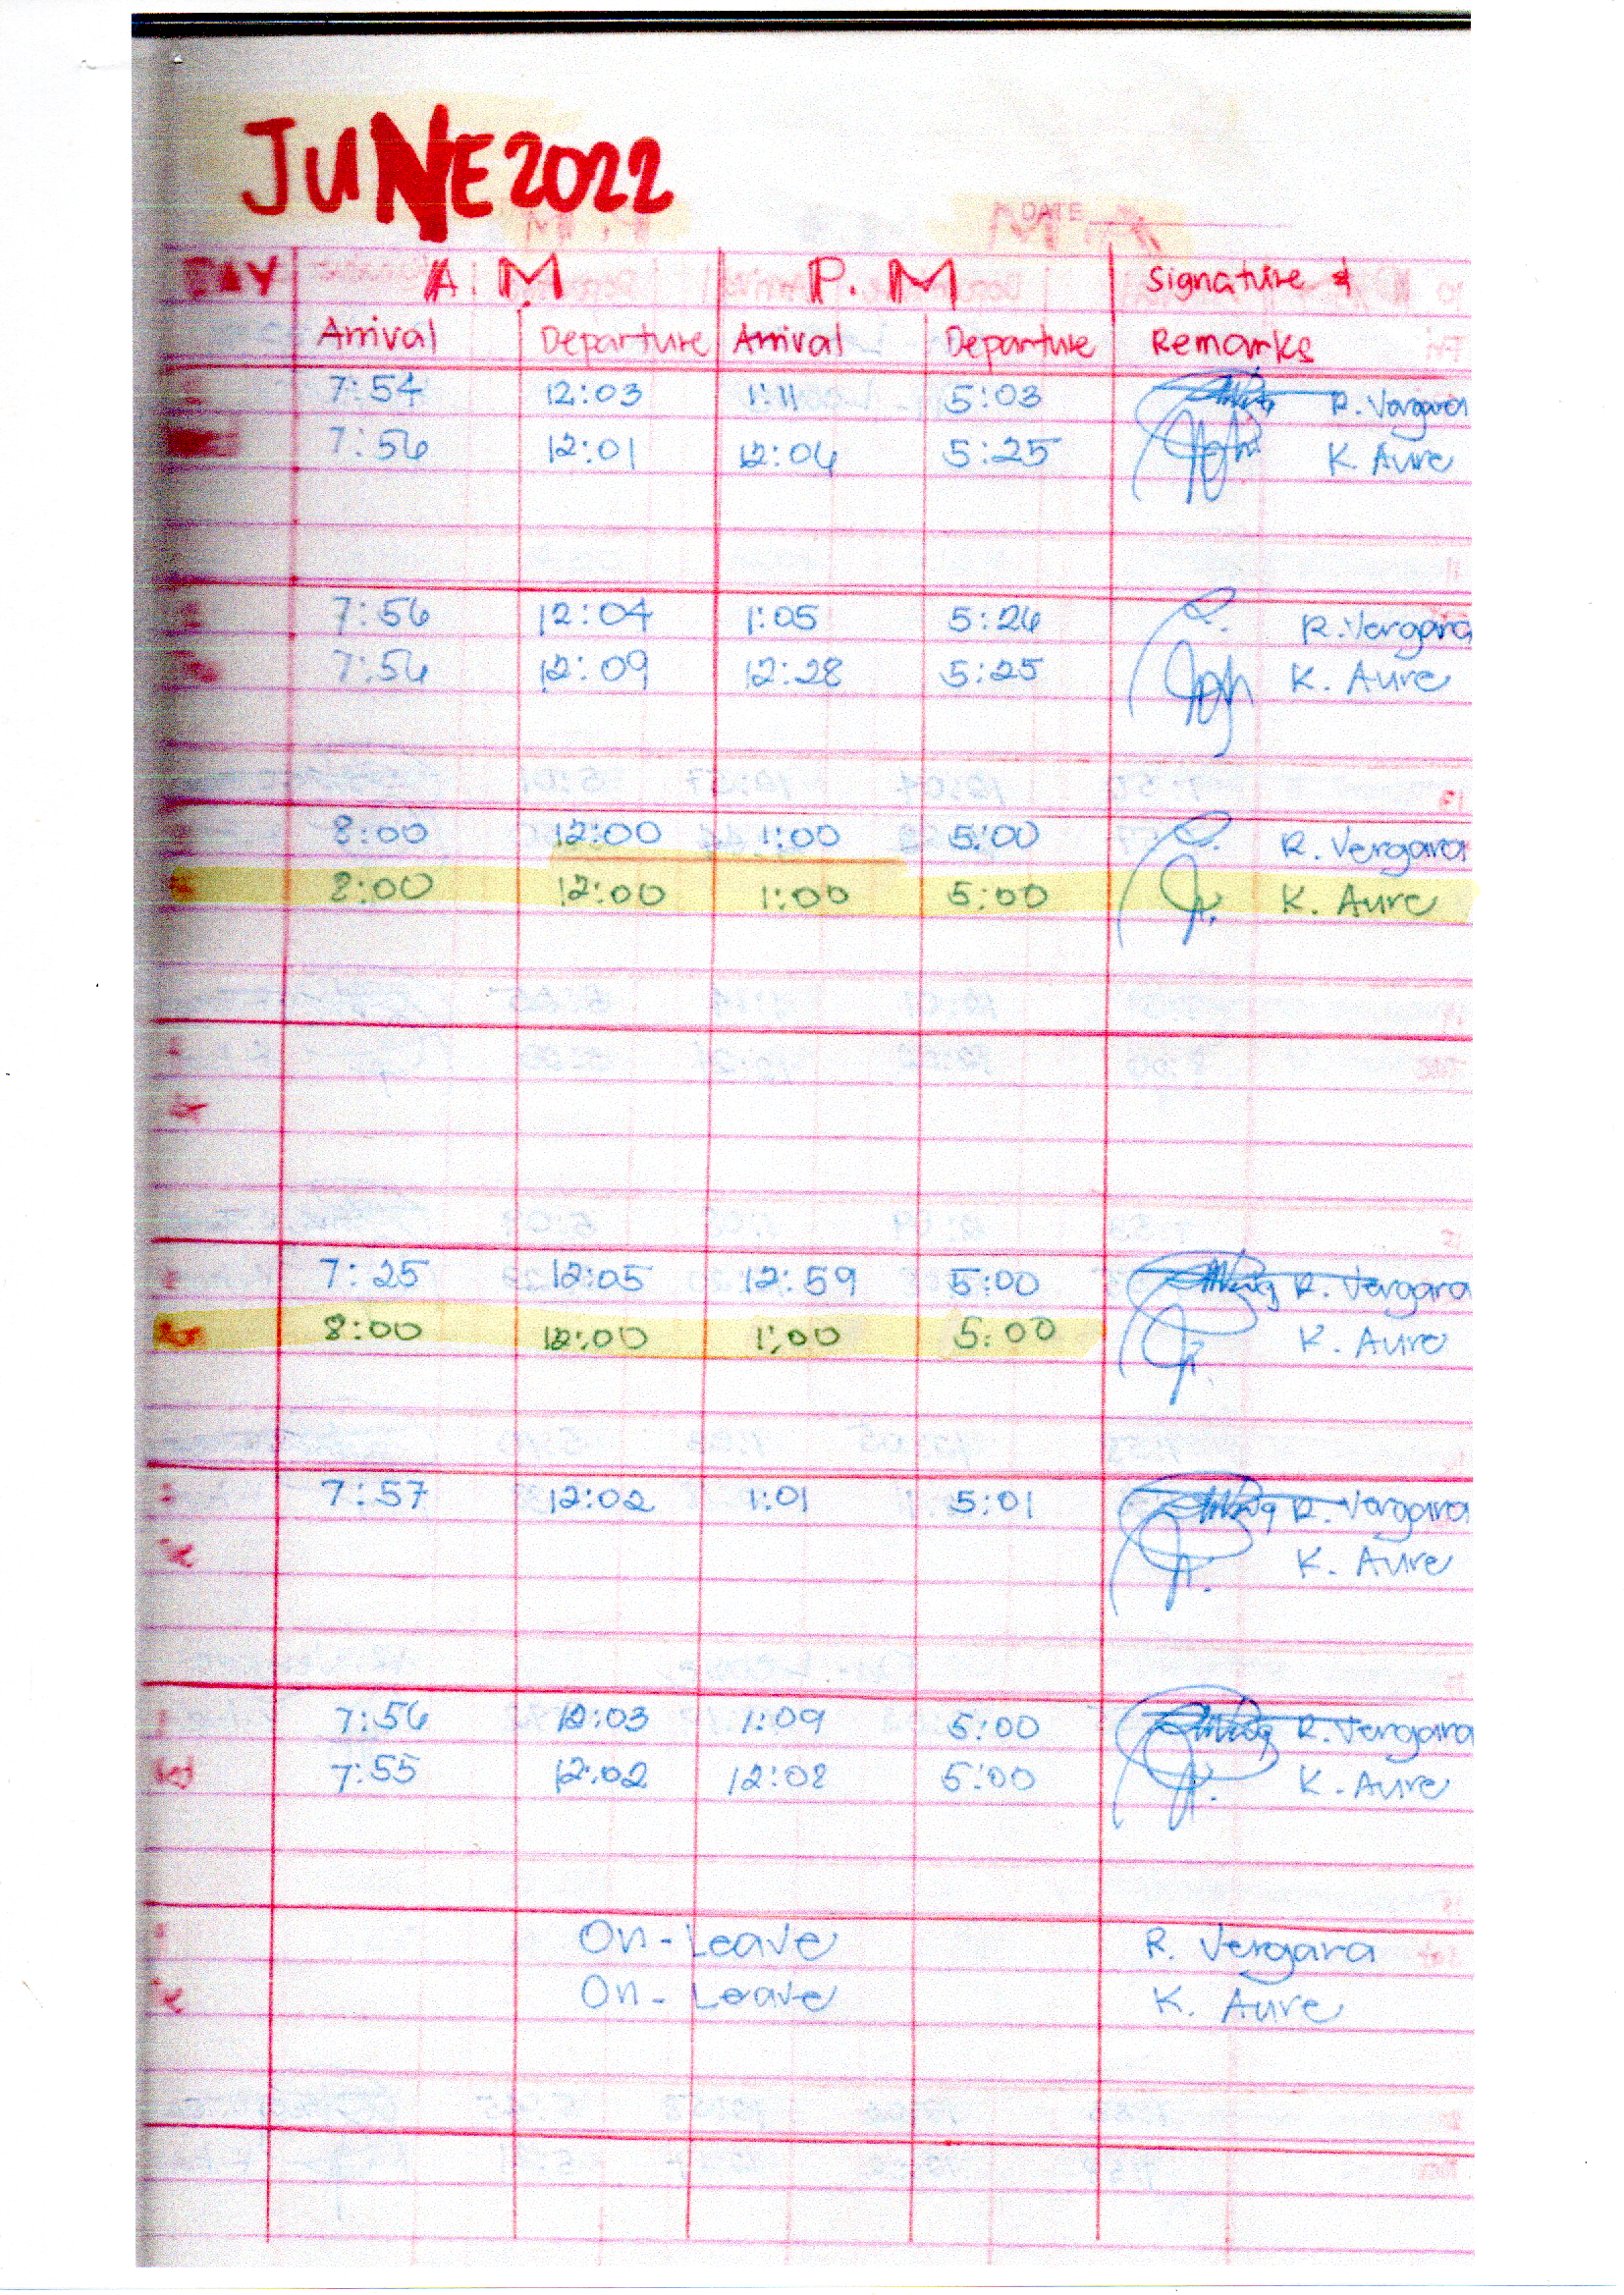 JUNE 2022
DATE
DAY A.M P.M Signature &
Arrival Departure Arrival Departure Remarks
7:54 12:03 1:11 5:03 R. Vergara
7:56 12:01 12:06 5:25 K. Aure
7:56 12:04 1:05 5:26 R. Vergara
7:56 12:09 12:28 5:25 K. Aure
8:00 12:00 1:00 5:00 R. Vergara
8:00 12:00 1:00 5:00 K. Aure
7:25 12:05 12:59 5:00 R. Vergara
8:00 12:00 1:00 5:00 K. Aure
7:57 12:02 1:01 5:01 R. Vergara
K. Aure
7:56 12:03 1:09 5:00 R. Vergara
Wed 7:55 12:02 12:08 5:00 K. Aure
On-Leave R. Vergara
On-Leave K. Aure